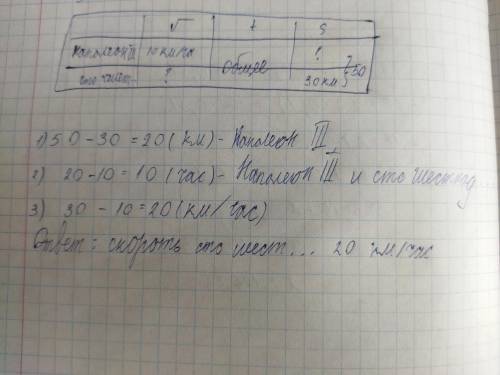 v t S
Наполеон III 10 км/час общее ? } 50
сто шест. ? 30 км
1) 50 - 30 = 20 (км) - Наполеон III
2) 20 - 10 = 10 (час) - Наполеон III и сто шест
3) 30 - 10 = 20 (км/час)
Ответ: скорость сто шест... 20 км/час